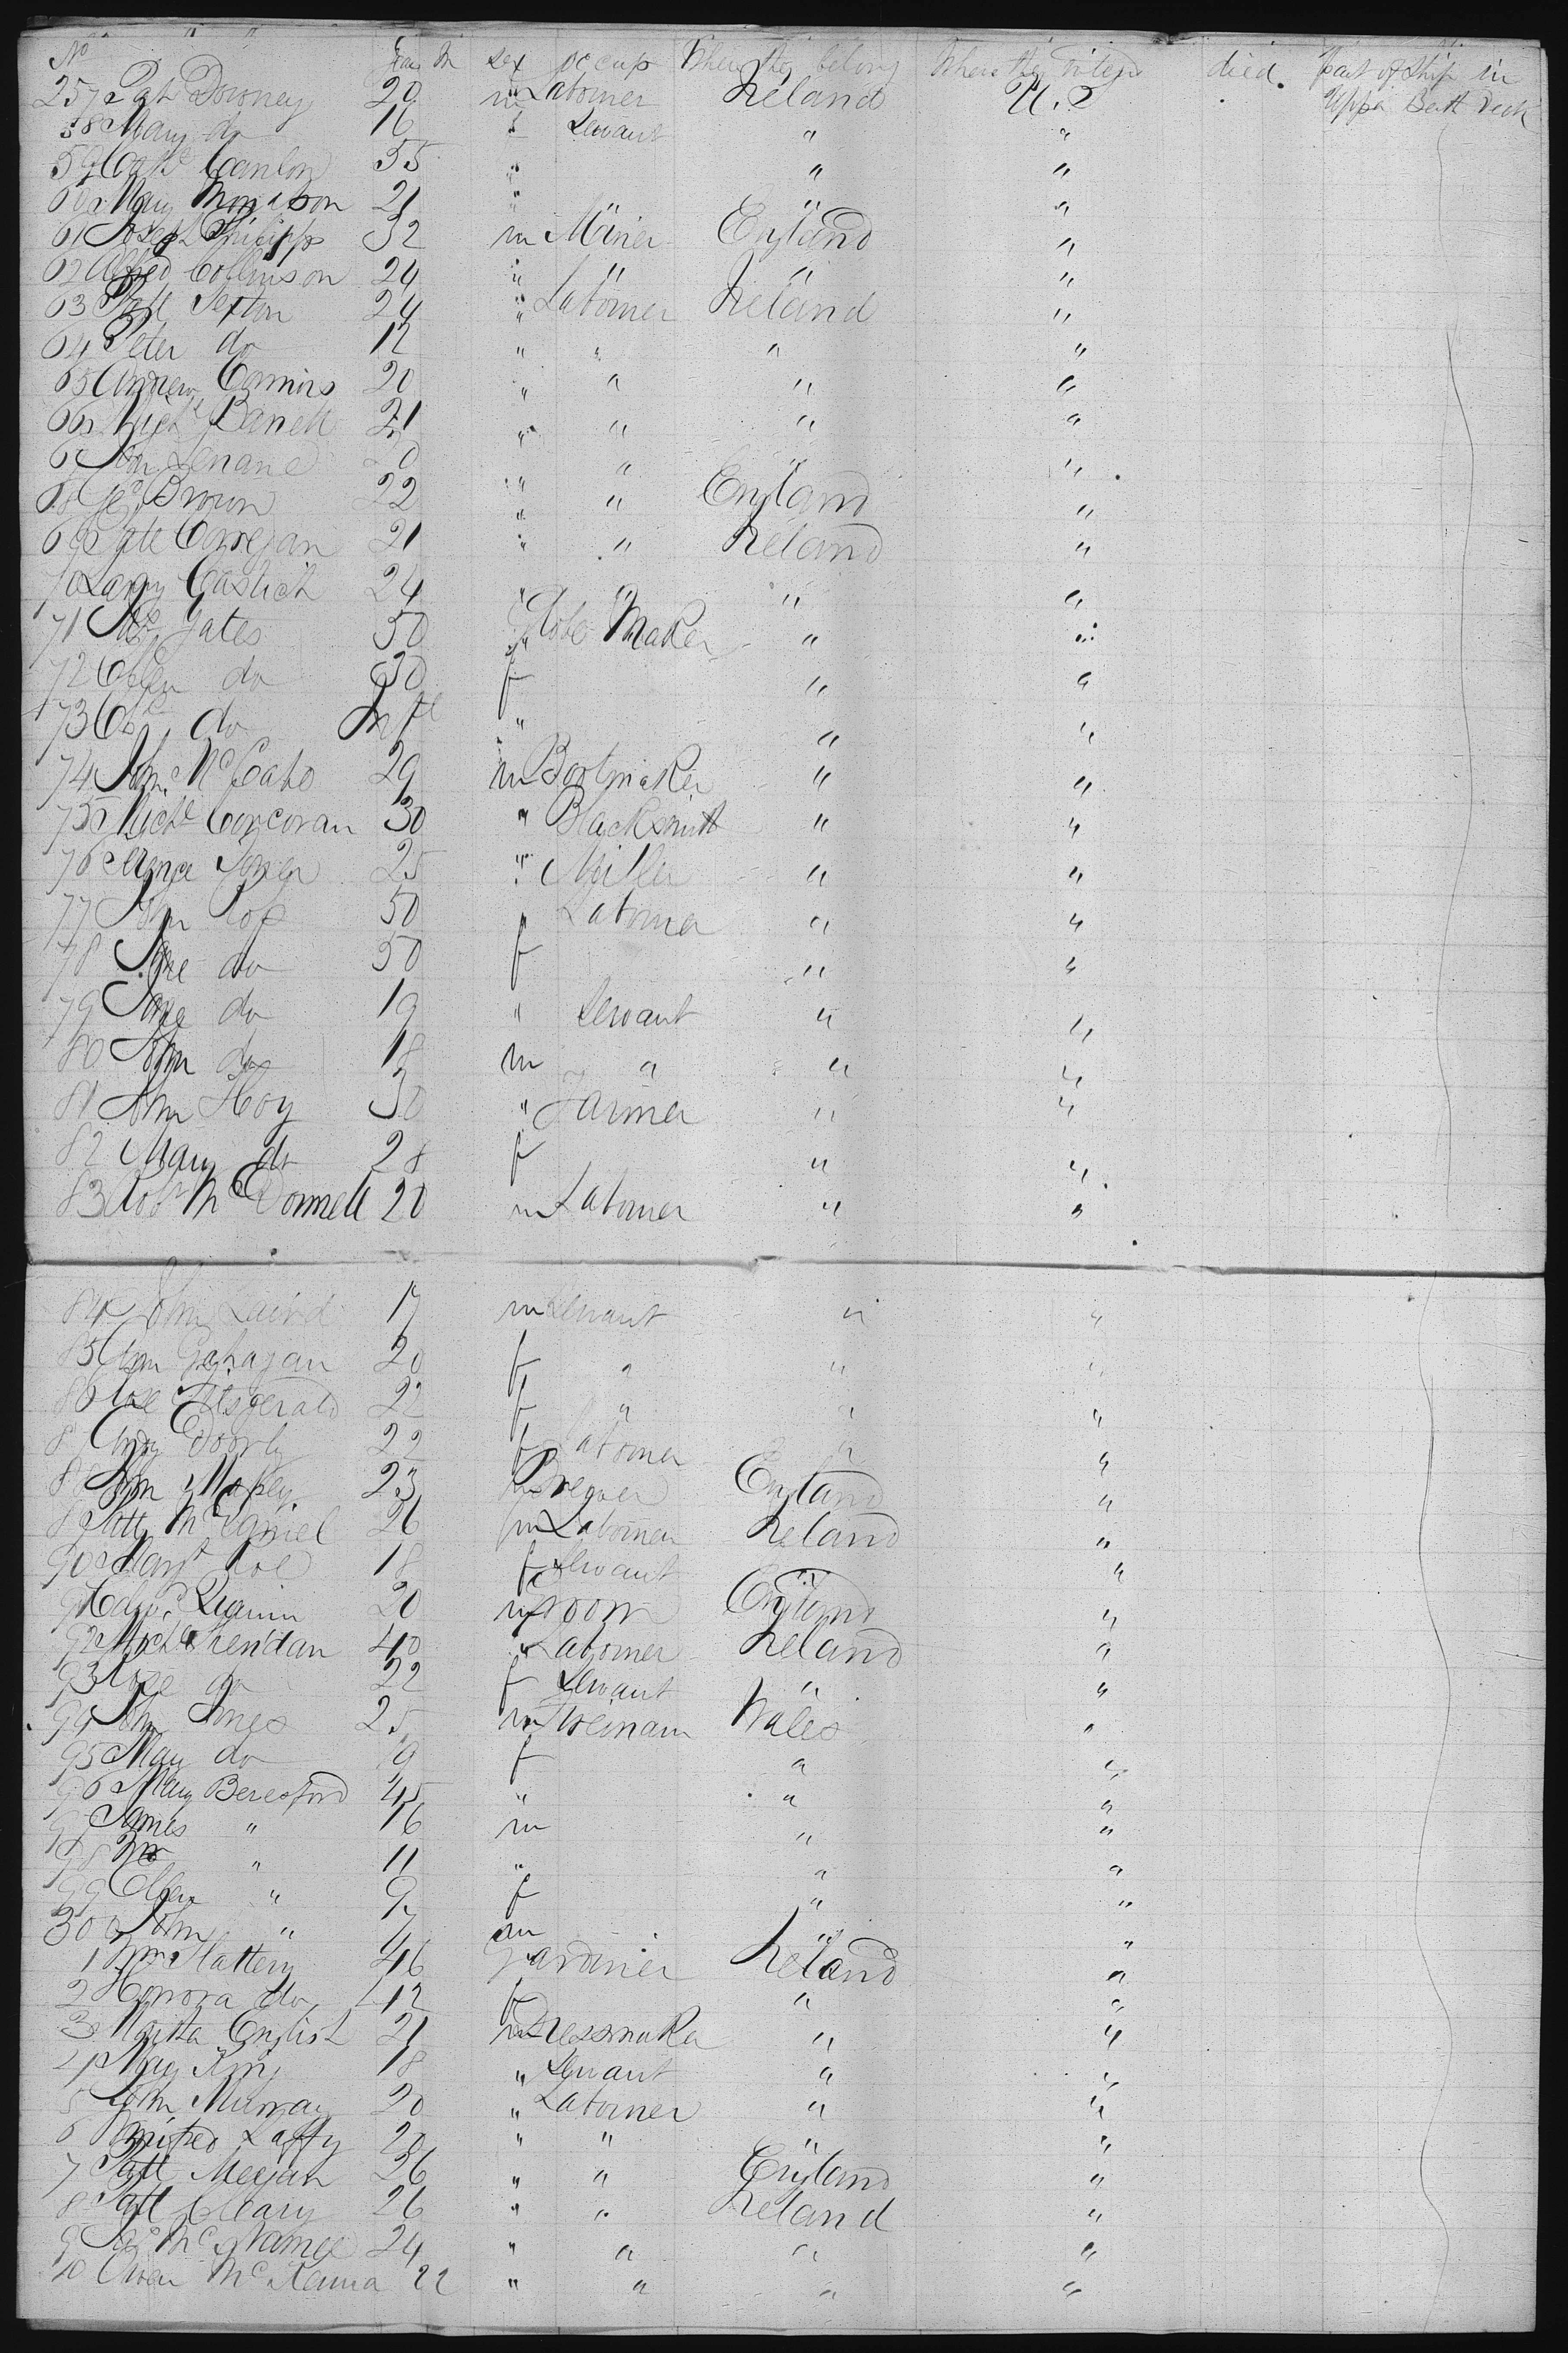 No " " Years M sex occup Where they belong Where they intend died. part of Ship in
257 Pat Downey 20 m Labourer Ireland U.S Upper Deck
58 Mary do 16 f Servant " "
59 Cathe Canlon 55 " " "
60 Mary 21 " " "
61 Joseph Philipps 32 m Miner England "
62 Alfred Collinson 24 " " " "
63 Patt Sexton 24 " Labourer Ireland "
64 Peter do 12 " " " "
65 Andrew Connors 20 " " " "
66 Michl Barrett 21 " " " "
67 Jon Lenane 20 " " " "
68 Geo Brown 22 " " England "
69 Patt Corregan 21 " " Ireland "
70 Larry 24 " " " "
71 Yates 50 " Maker " "
72 Ellen do 30 f " "
73 do Inft " " "
74 John McCabe 29 m Bootmaker " "
75 Michl Corcoran 30 " Blacksmith " "
76 25 " Miller " "
77 John 50 " Labourer " "
78 Jane do 50 f " "
79 Jane do 19 " Servant " "
80 John do 18 m " " "
81 John Hoy 30 " Farmer " "
82 Mary do 28 f " "
83 Robt McDonnell 20 m Labourer " "
84 John Laird 17 m Servant " "
85 Ann Gahagan 20 f " " "
86 Rose Fitsgerald 22 f " " "
87 Doorly 22 f Labourer " "
88 23 m England "
89 Patt McDaniel 26 m Labourer Ireland "
90 Margt 18 f Servant " "
91 Edwd 20 m Groom England "
92 Michl Sheridan 40 " Labourer Ireland "
93 Rose do 22 f Servant " "
94 John Jones 25 m Fireman Wales "
95 Mary do 9 f " "
96 Mary Beresford 45 " " "
97 James " 16 m " "
98 Wm " 11 " " "
99 Ellen " 9 f " "
300 John " 7 m " "
1 Wm Slattery 46 Gardiner Ireland "
2 Honora do 42 f " "
3 English 21 Dressmaker " "
4 Mary King 18 " Servant " "
5 John Murray 20 " Labourer " "
6 Laffy 20 " " " "
7 Patt Meegan 26 " " England "
8 Patt Cleary 26 " " Ireland "
9 Jas McNamee 24 " " " "
10 Owen McKenna 22 " " " "